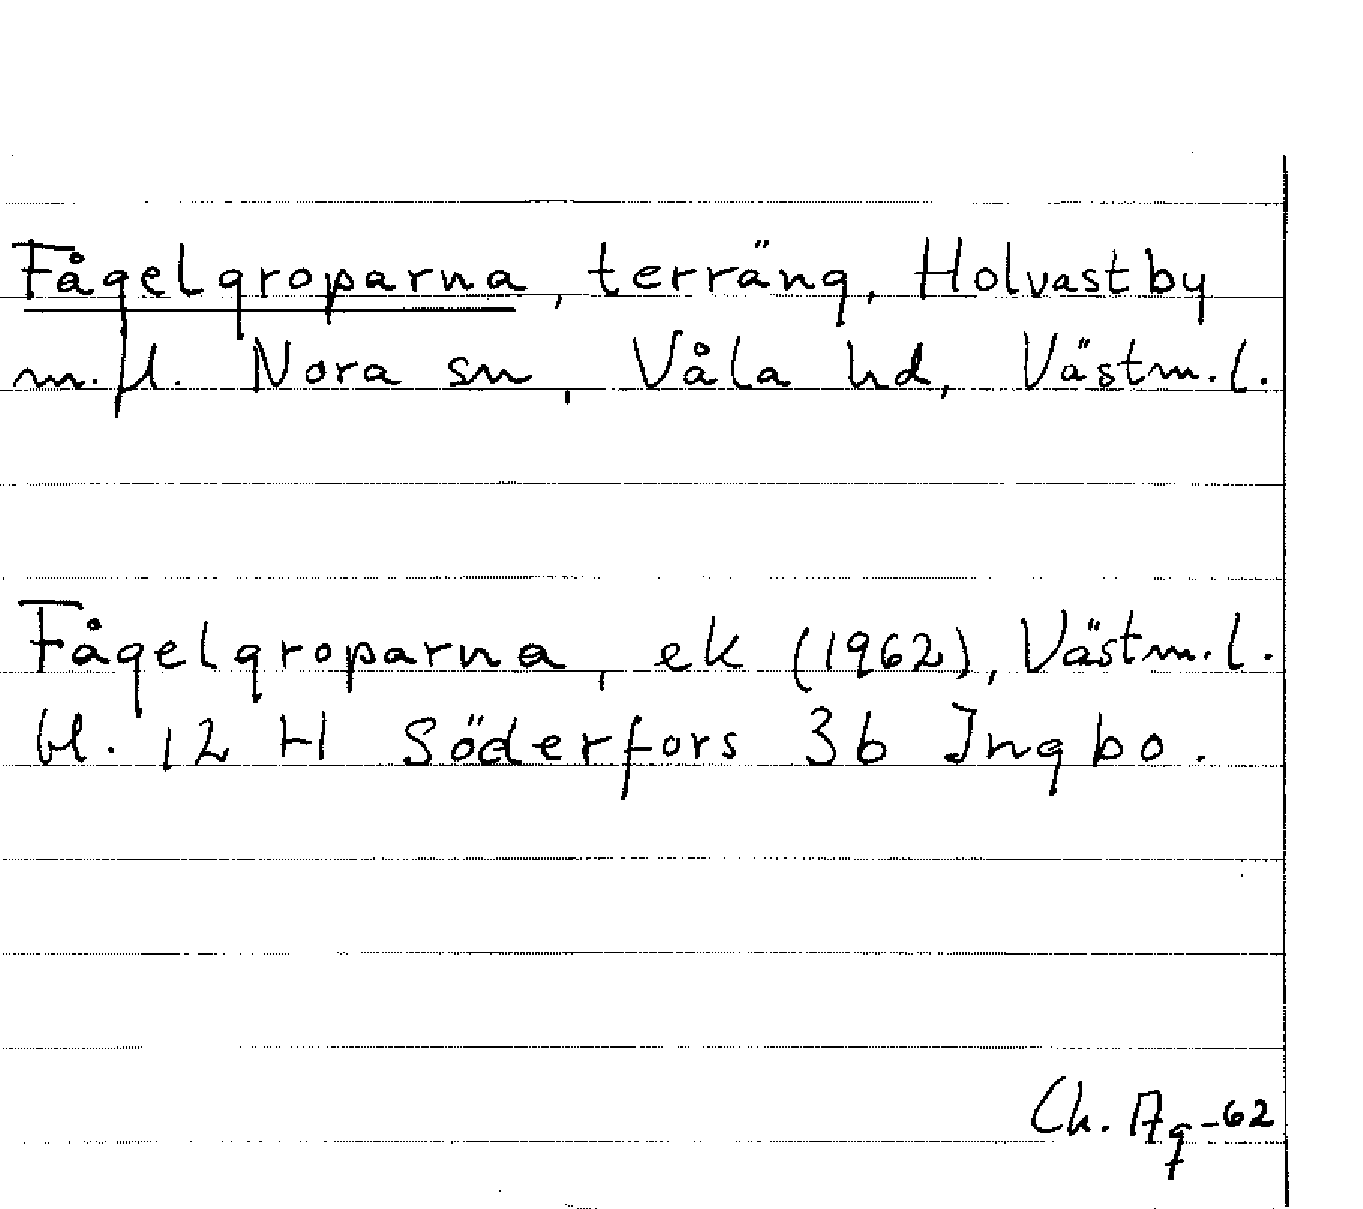 Fågelgroparna, terräng, Holvastby
m.fl. Nora sn, Våla hd, Västm.l.
Fågelgroparna, ek (1962), Västm.l.
bl. 12 H Söderfors 3b Ingbo.
Ch. Ag-62